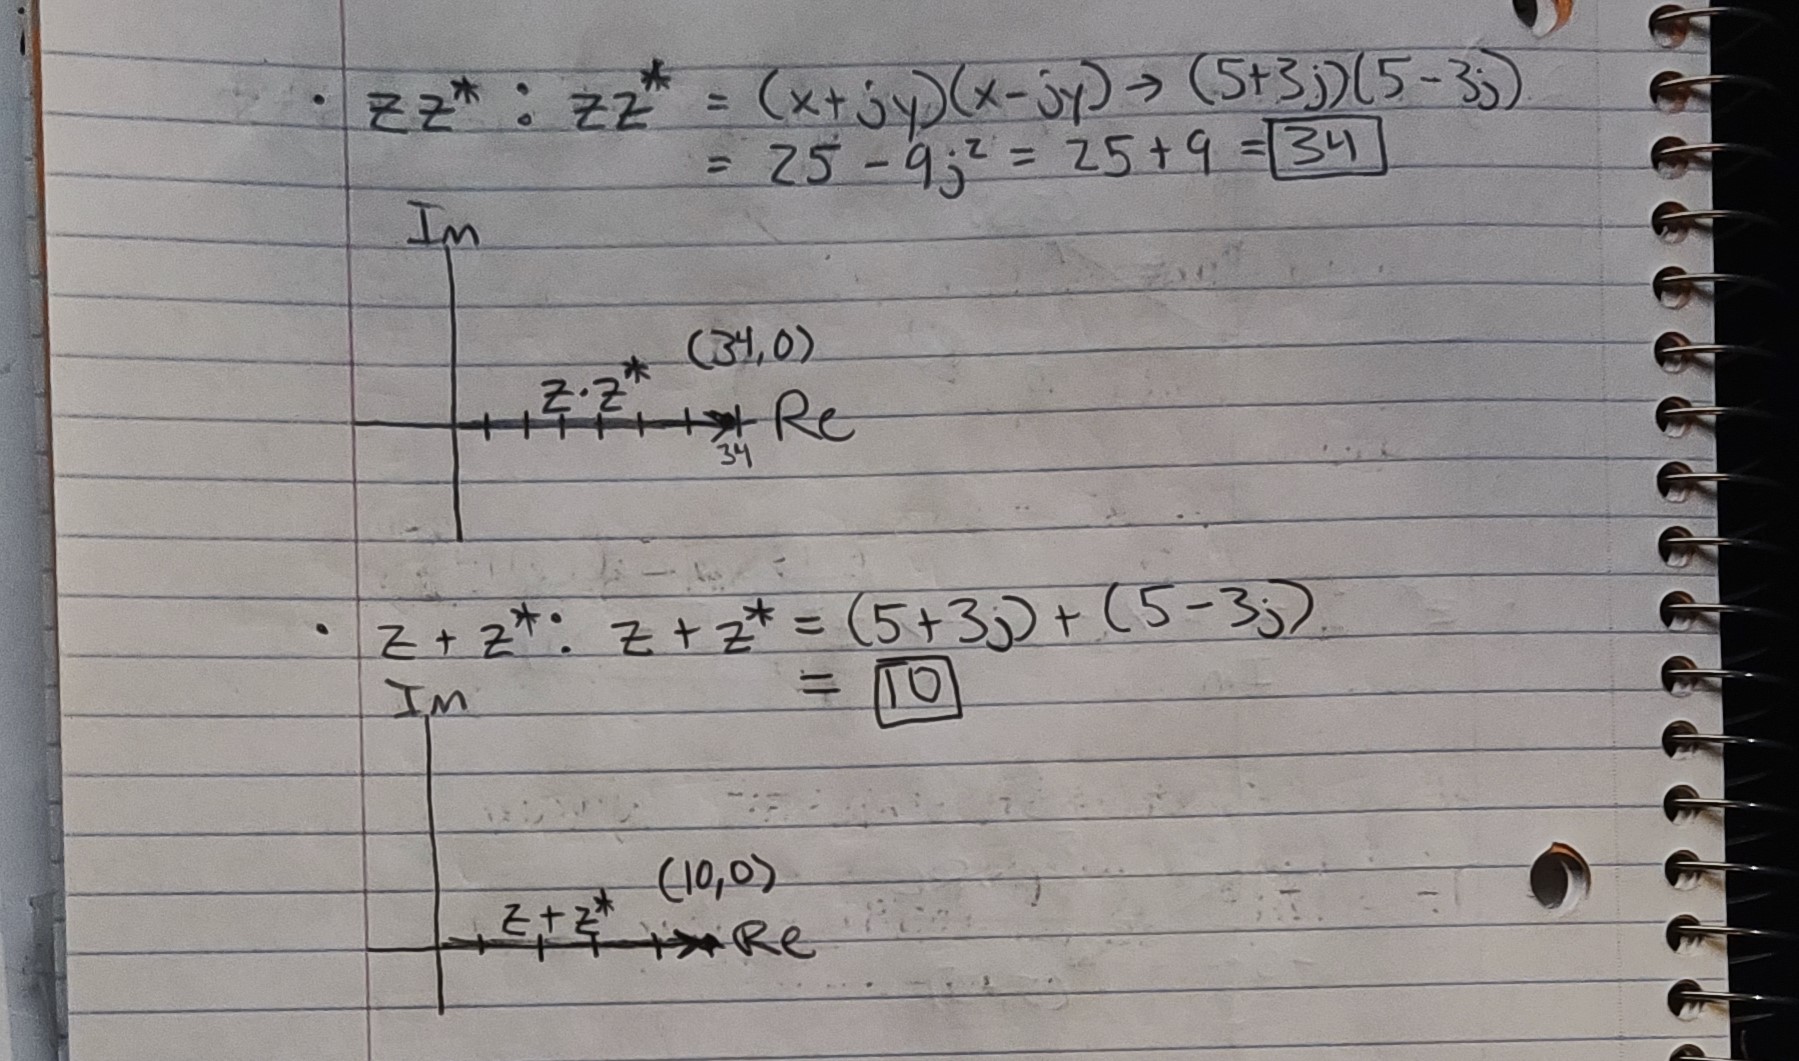 · zz* : zz* = (x+jy)(x-jy) → (5+3j)(5-3j)
= 25 - 9j² = 25+9 = 34
Im
(34,0)
z·z*
Re
34
· z + z* : z + z* = (5+3j) + (5-3j)
= 10
Im
(10,0)
z + z*
Re